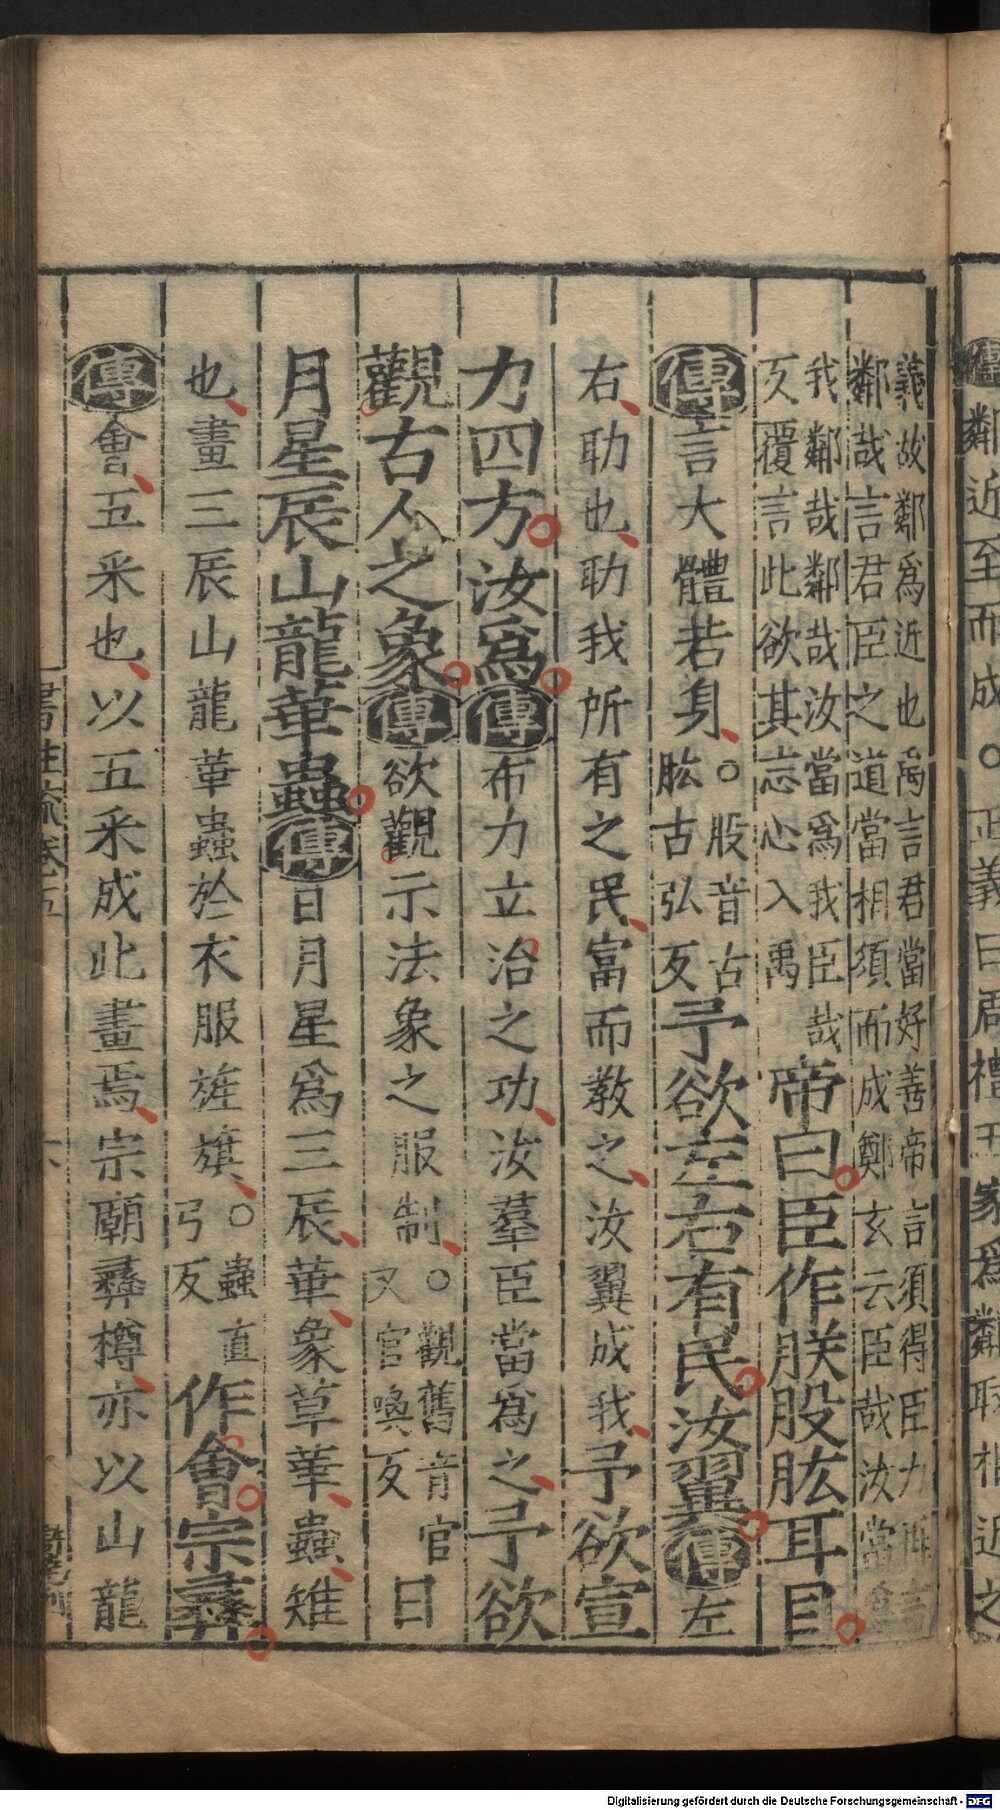 義故鄰爲近也禹言君當好善帝言須得臣力再言
鄰哉言君臣之道當相須而成鄭玄云臣哉汝當爲
我鄰哉鄰哉汝當爲我臣哉
反覆言此欲其志心入禹
帝曰臣作朕股肱耳目
傳言大體若身○股音古
肱古弘反
予欲左右有民汝翼傳左
右助也助我所有之民富而教之汝翼成我予欲宣
力四方汝爲傳布力立治之功汝羣臣當爲之予欲
觀古人之象傳欲觀示法象之服制○觀舊音官
又官喚反
日
月星辰山龍華蟲傳日月星爲三辰華象草華蟲雉
也畫三辰山龍華蟲於衣服旌旗○蟲直
弓反
作會宗彝
傳會五采也以五采成此畫焉宗廟彝樽亦以山龍
書註疏卷五
六
鄰近至而成○正義曰周禮五家爲鄰取相近之
Digitalisierung gefördert durch die Deutsche Forschungsgemeinschaft - DFG